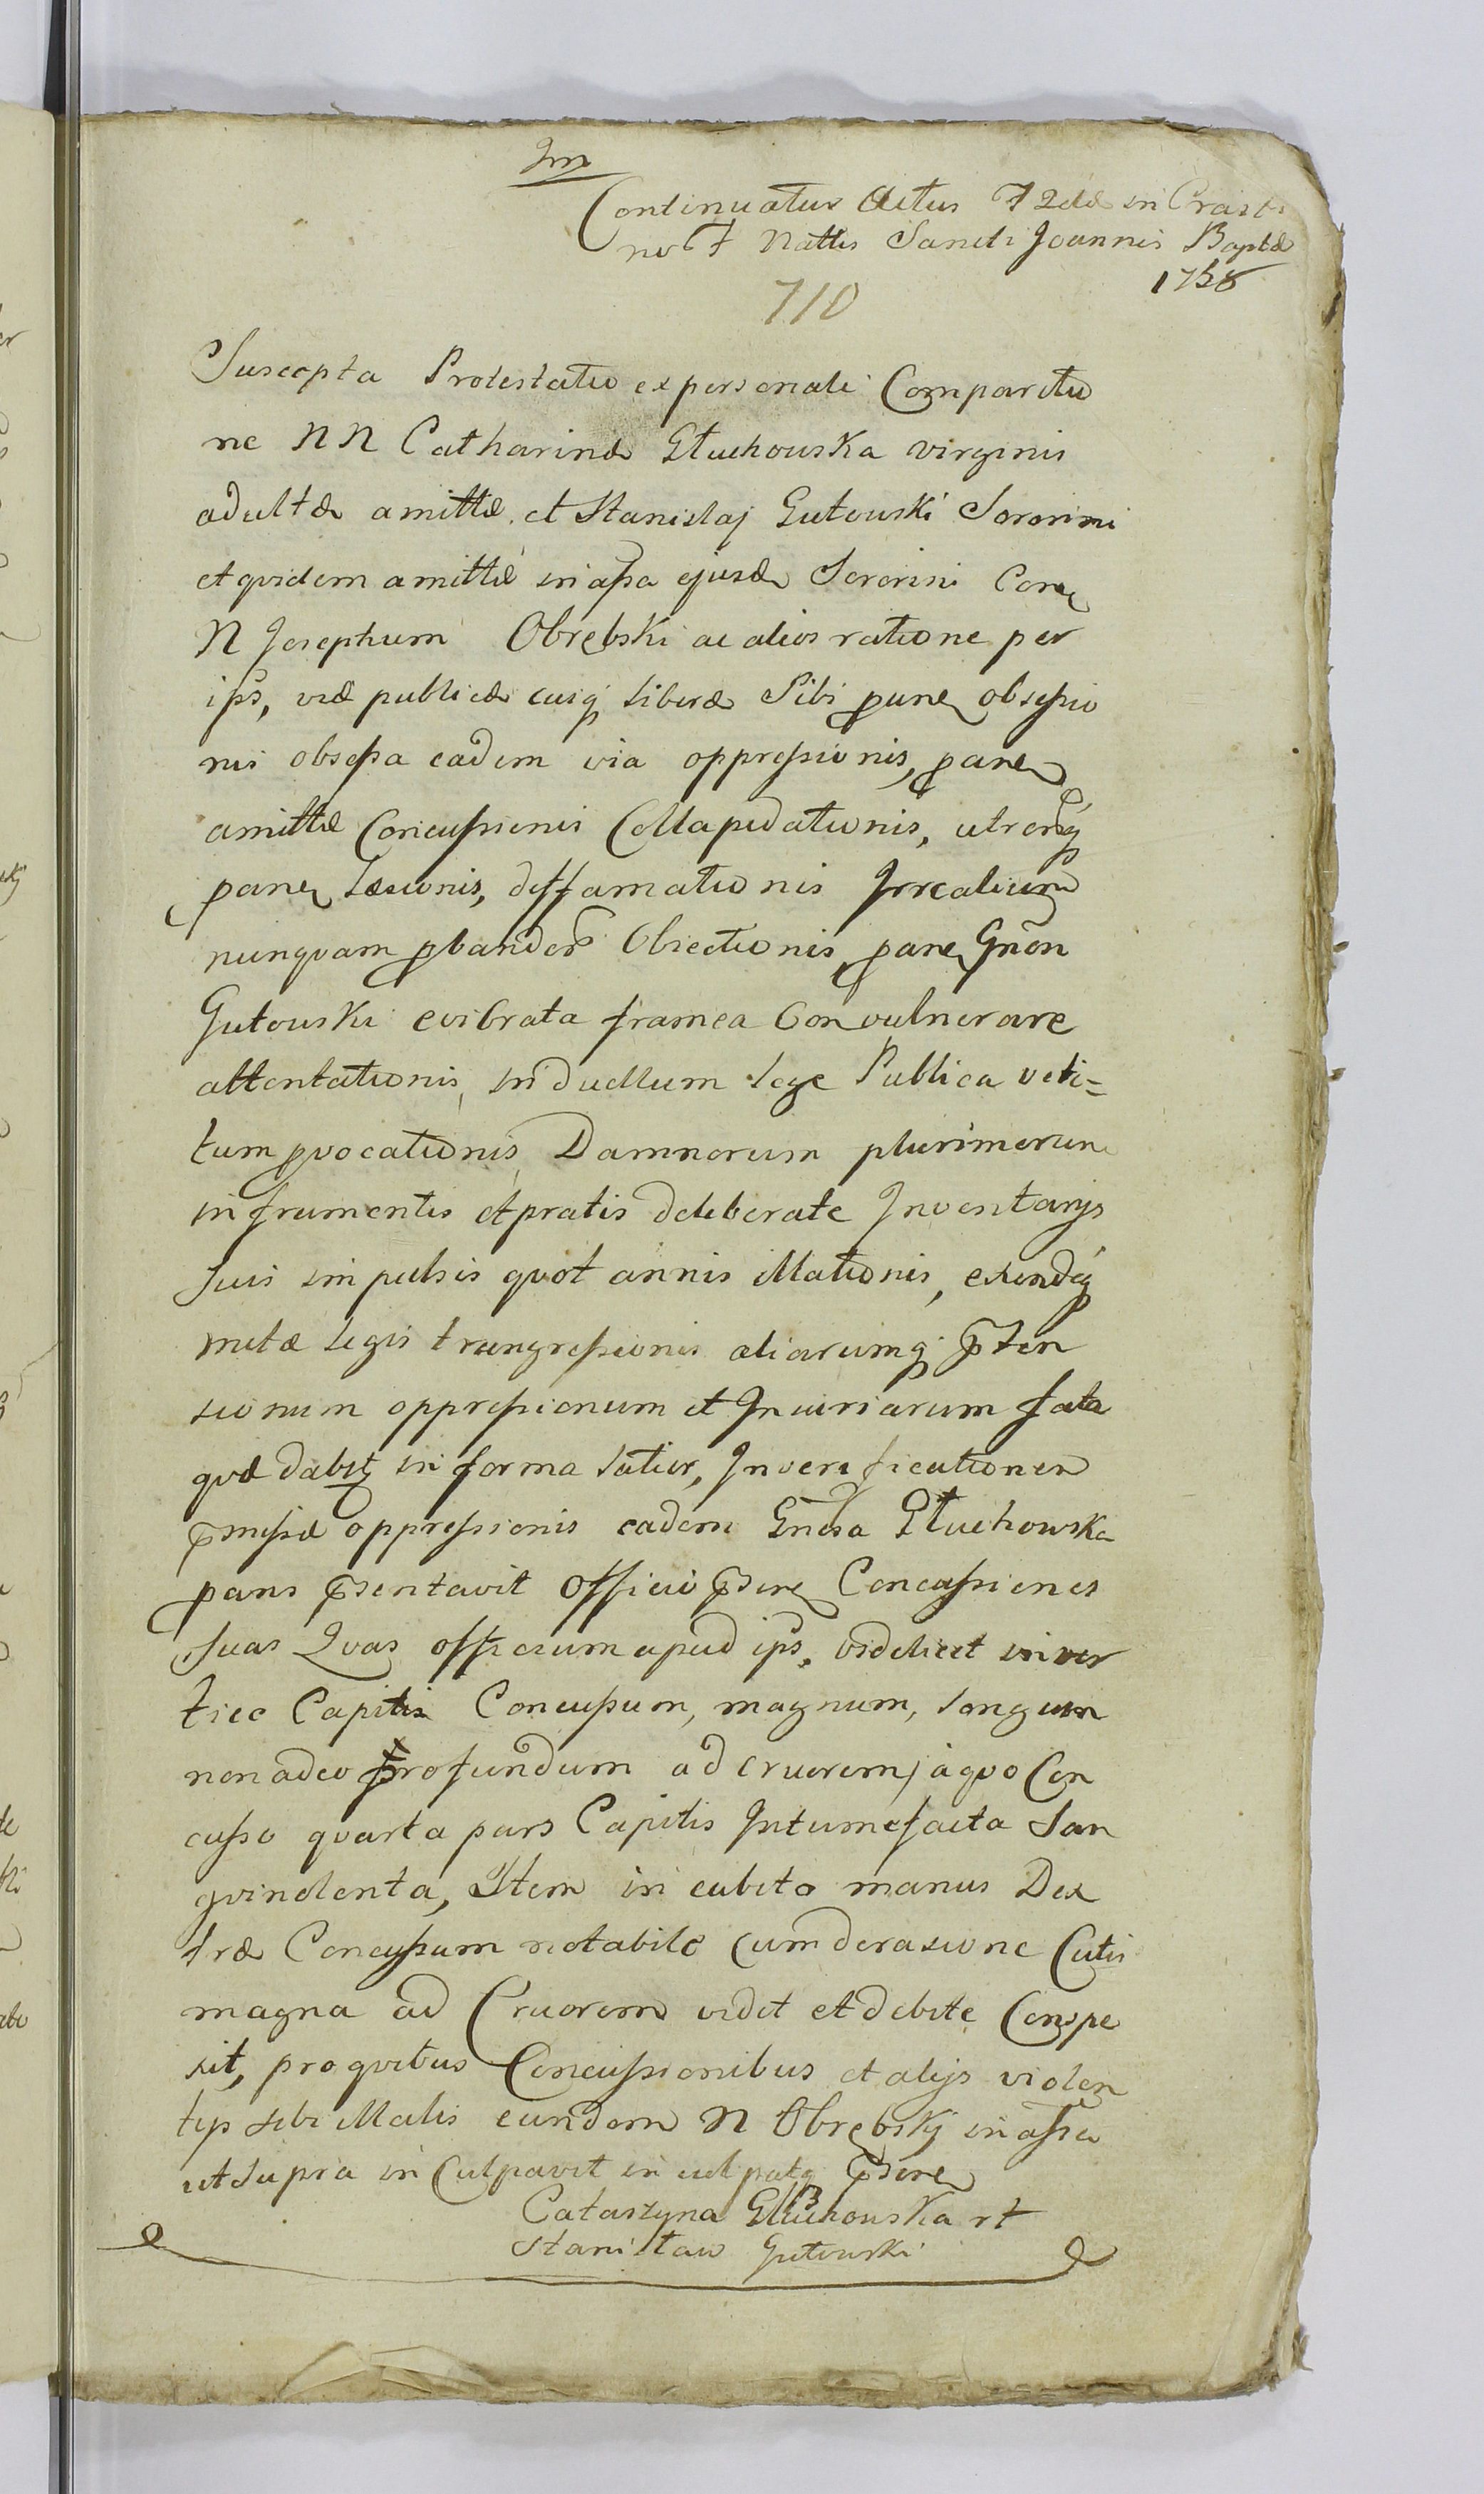 Im
Continuatur Actus F 2dæ in Crasti
no F Nattis Sancti Joannis Baptæ
1758
710
Suscepta Protestatio ex personali Comparitio
ne NN Catharinæ Głuchowska virginis
adultæ amittæ, et Stanislaj Gutowski Sororini
et qvidem amittæ in assa ejusdæ Sororini Cona
N Josephum Obrębski ac alios ratione per
ips, viæ publicæ cuiq liberæ Sibi pane obsessio
nis obsessa eadem via oppressionis, pane
amittæ Concussionis Collapidationis, utrorq
pane Læsionis, deffamationis Irrealium
nunqvam pbandor Obiectionis, pane Gnon
Gutowski evibrata framea Convulnerare
attentationis, in duellum lege Publica veti=
tum pvocationis Damnorum plurimorum
in frumentis et pratis deliberate Inventarijs
suis impulsis qvot annis illationis, exindeq
metæ legis transgressionis aliarumq pten
sionum oppressionum et Iniuriarum fata
qvæ dabit in forma latior, In verificationem
pmissæ oppressionis eadem Gnosa Głuchowska
pans psentavit Officio psene Concussiones
suas Qvas officium apud ips, videlicet in ver
tice Capitis Concussum, magnum, longum
non adeo profundum ad cruorem, a qvo Con
cusso qvarta pars Capitis Intumefacta San
gvinolenta, Item in cubito manus Dex
træ Concussum notabile cum derasione Cutis
magna ad Cruorem vidit et debite Conspe
xit, pro qvibus Concussionibus et alijs violen
tijs sibi illatis eundem N Obrębskij in assa
ut supra in Culpavit in culpatq psene
Catarzyna Głuchowska rt
Stanisław Gutowski